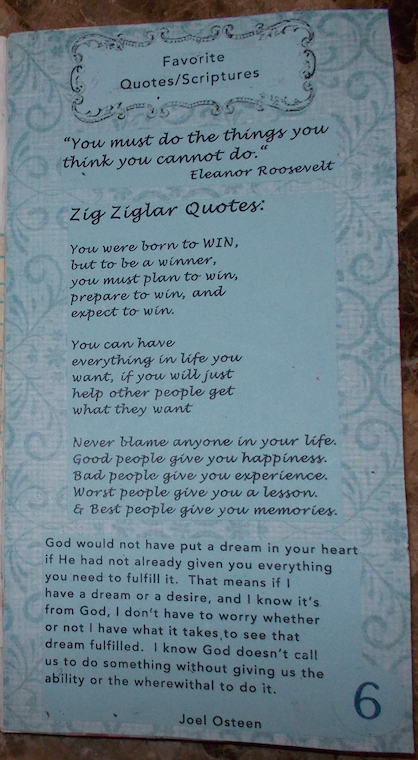 Favorite
Quotes/Scriptures
"You must do the things you
think you cannot do."
Eleanor Roosevelt
Zig Ziglar Quotes:
You were born to WIN,
but to be a winner,
you must plan to win,
prepare to win, and
expect to win.
You can have
everything in life you
want, if you will just
help other people get
what they want
Never blame anyone in your life.
Good people give you happiness.
Bad people give you experience.
Worst people give you a lesson.
& Best people give you memories.
God would not have put a dream in your heart
if He had not already given you everything
you need to fulfill it. That means if I
have a dream or a desire, and I know it's
from God, I don't have to worry whether
or not I have what it takes to see that
dream fulfilled. I know God doesn't call
us to do something without giving us the
ability or the wherewithal to do it.
Joel Osteen
6